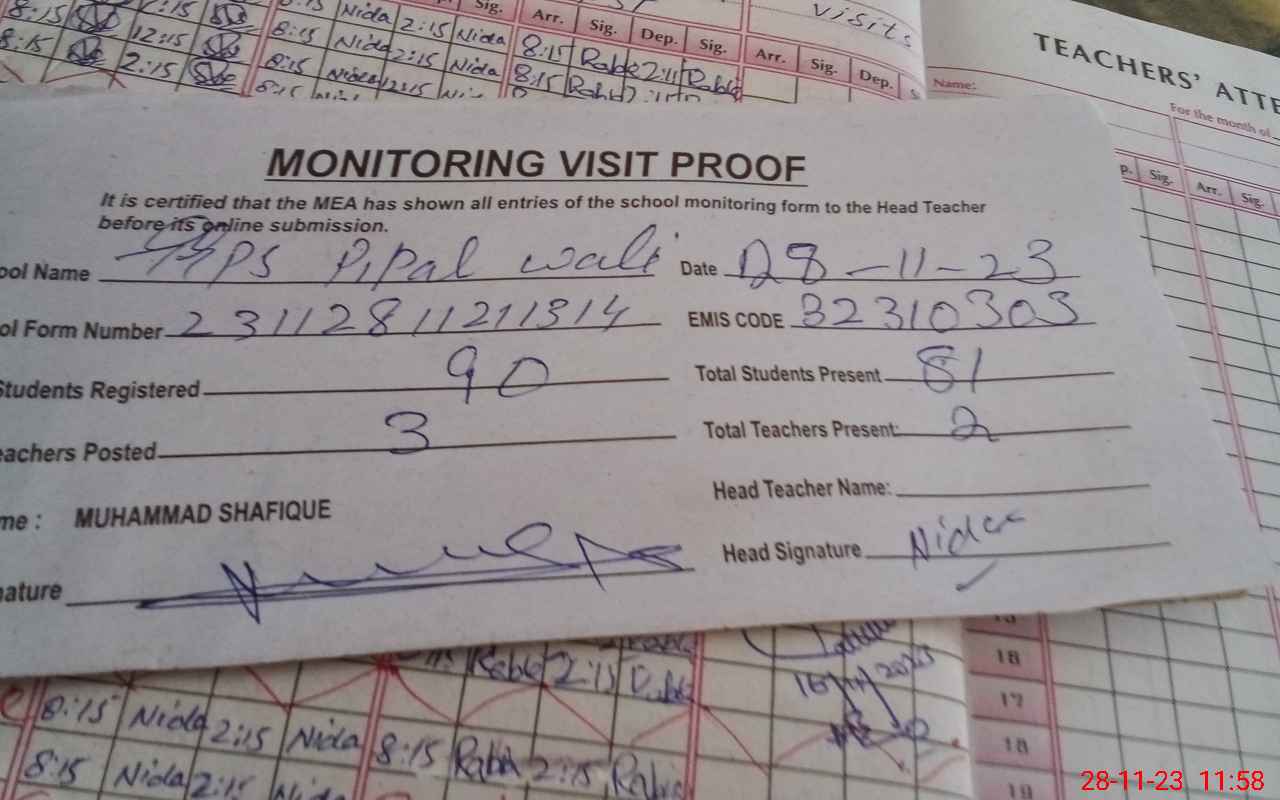 8:15 12:15 8:15 Nida 2:15 Nida
8:15 2:15 8:15 Nida 2:15 Nida
8:15 Nida 2:15 Nida
Sig. Arr. Sig. Dep. Sig. Arr. Sig. Dep.
8:15 2:15
8:15
visits
TEACHERS' ATTE
Name:
For the month of
p. Sig. Arr. Sig.
MONITORING VISIT PROOF
It is certified that the MEA has shown all entries of the school monitoring form to the Head Teacher
before its online submission.
ool Name PS Pipal wali Date 28-11-23
ol Form Number 23112811211314 EMIS CODE 32310303
Students Registered 90 Total Students Present 81
eachers Posted 3 Total Teachers Present: 2
Head Teacher Name:
me : MUHAMMAD SHAFIQUE
Head Signature Nida
nature
2:15
8:15 Nida 2:15 Nida 8:15 Rabia 2:15 Rabia
8:15 Nida 2:15
16
17
18
19
28-11-23 11:58